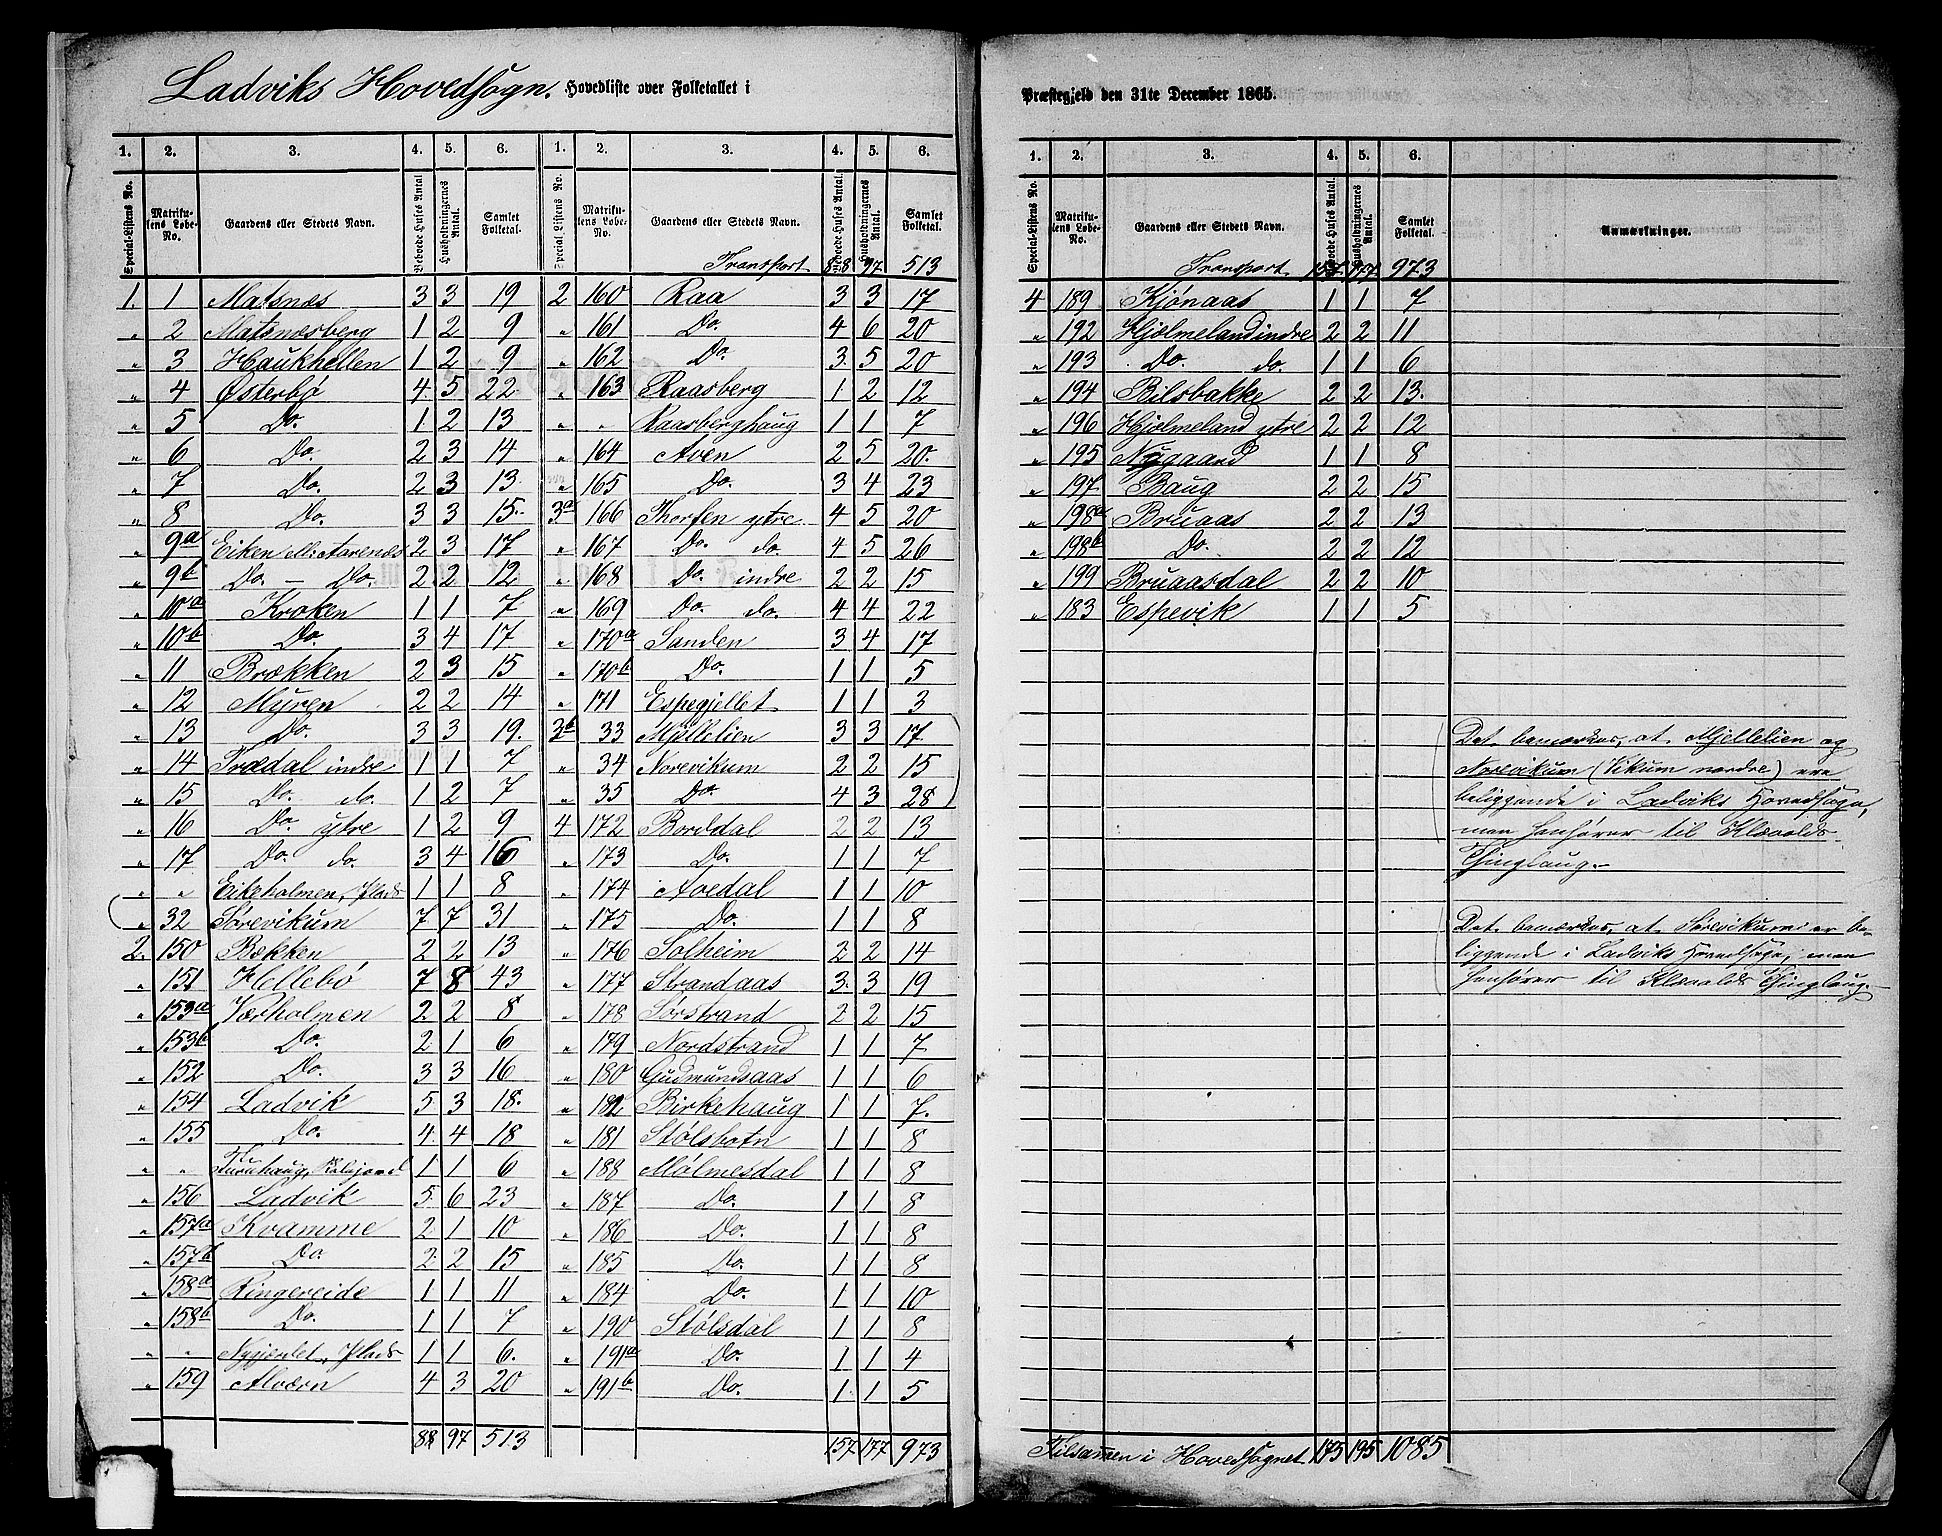 Ladviks Hovedsogn. Hovedliste over Folketallet i
1. 2. 3. 4. 5. 6. 1. 2. 3. 4. 5. 6.
Special-Listens No. Matrikulens Løbe-No. Gaardens eller Stedets Navn. Beboede Huses Antal Husholdningernes Antal. Samlet Folketal. Special Listens No. Matrikulens Løbe-No. Gaardens eller Stedets Navn. Beboede Huses Antal. Husholdningernes Antal. Samlet Folketal.
1. 1 Matsnæs 3 3 19
" 2 Matsnæsberg 1 2 9
" 3 Haukhellen 1 2 9
" 4 Østerbø 4 5 22
" 5 Do. 1 2 13
" 6 Do. 2 3 14
" 7 Do. 2 3 13
" 8 Do. 3 3 15
" 9a Eiken ell: Aarenæs 2 3 17
" 9b Do. – Do. 2 2 12
" 10a Kroken 1 1 7
" 10b Do. 3 4 17
" 11 Brækken 2 3 15
" 12 Myren 2 2 14
" 13 Do. 3 3 19.
" 14 Trædal indre 1 1 7
" 15 Do. do. 1 2 7
" 16 Do. ytre 1 2 9
" 17 Do. do. 3 4 16
" " Eikeholmen, Plads 1 1 8
" 32 Sørevikum 7 7 31
2. 150 Bekken 2 2 13
" 151 Hellebø 7 8 43
" 153a Værholmen 2 2 8
" 153b Do. 2 1 6
" 152 Do. 3 3 16
" 154 Ladvik 5 3 18.
" 155 Do. 4 4 18
" " Furuhaug, 1 1 6
" 156 Ladvik 5 6 23
" 157a Kvamme 2 1 10
" 157b Do. 2 2 15
" 158a Ringereide 1 1 11
" 158b Do. 1 1 7
" " Nygjerdet, Plads 1 1 6.
" 159 Alværn 4 3 20
88 97 513
Transport 88 97 513
2 160 Raa 3 3 17
" 161 Do. 4 6 20
" 162 Do. 3 5 20
" 163 Raasberg 1 2 12
" " Raasberghaug 1 1 7
" 164 Aven 2 5 20.
" 165 Do. 3 4 23
3a 166 Thorsen ytre 4 5 20
" 167 Do. do. 4 5 26
" 168 Do. indre 2 2 15
" 169 Do. do. 4 4 22
" 170a Sanden 3 4 17
" 170b Do. 1 1 5
" 171 Espegjellet 1 1 3
3b 33 Mjellelien 3 3 17
" 34 Norevikum 2 2 15
" 35 Do. 4 3 28
4 172 Borddal 2 2 13
" 173 Do. 1 1 7
" 174 Avedal 1 1 10
" 175 Do. 1 1 8
" 176 Solheim 2 2 14
" 177 Strandaas 3 3 19
" 178 Sørstrand 2 2 15
" 179 Nordstrand 1 1 7
" 180 Gudmundsaas 1 1 6
" 182 Birkehaug 1 1 7.
" 181 Stølsbotn 1 1 8
" 188 Mølmesdal 1 1 8
" 187 Do. 1 1 8
" 186 Do. 1 1 8
" 185 Do. 1 1 8
" 184 Do. 1 1 10
" 190 Stølsdal 1 1 8
" 191a Do. 1 1 4
" 191b Do. 1 1 5
157 177 973
Præstegjeld den 31te December 1865.
1. 2. 3. 4. 5. 6.
Special-Listens No. Matrikulens Løbe-No. Gaardens eller Stedets Navn. Beboede Huses Antal. Husholdningernes Antal. Samlet Folketal. Anmærkninger.
Transport 157 177 973
4 189 Kjønaas 1 1 7
" 192 Hjelmeland indre 2 2 11
" 193 Do. do. 1 1 6
" 194 Bilsbakke 2 2 13.
" 196 Hjelmeland ytre 2 2 12
" 195 Nygaard 1 1 8
" 197 Baug 2 2 15
" 198a Bruaas 2 2 13
" 198b Do. 2 2 12
" 199 Bruaasdal 2 2 10
" 183 Espevik 1 1 5
Det bemærkes, at Mjellelien og
Norevikum (Vikum nordre) ere
beliggende i Ladviks Hovedsogn,
men henhører til Klævolds
Thinglaug.
Det bemærkes, at Sørevikum er be-
liggende i Ladviks Hovedsogn, men
henhører til Klævolds Thinglaug.
Tilsammen i Hovedsognet 175 195 1085